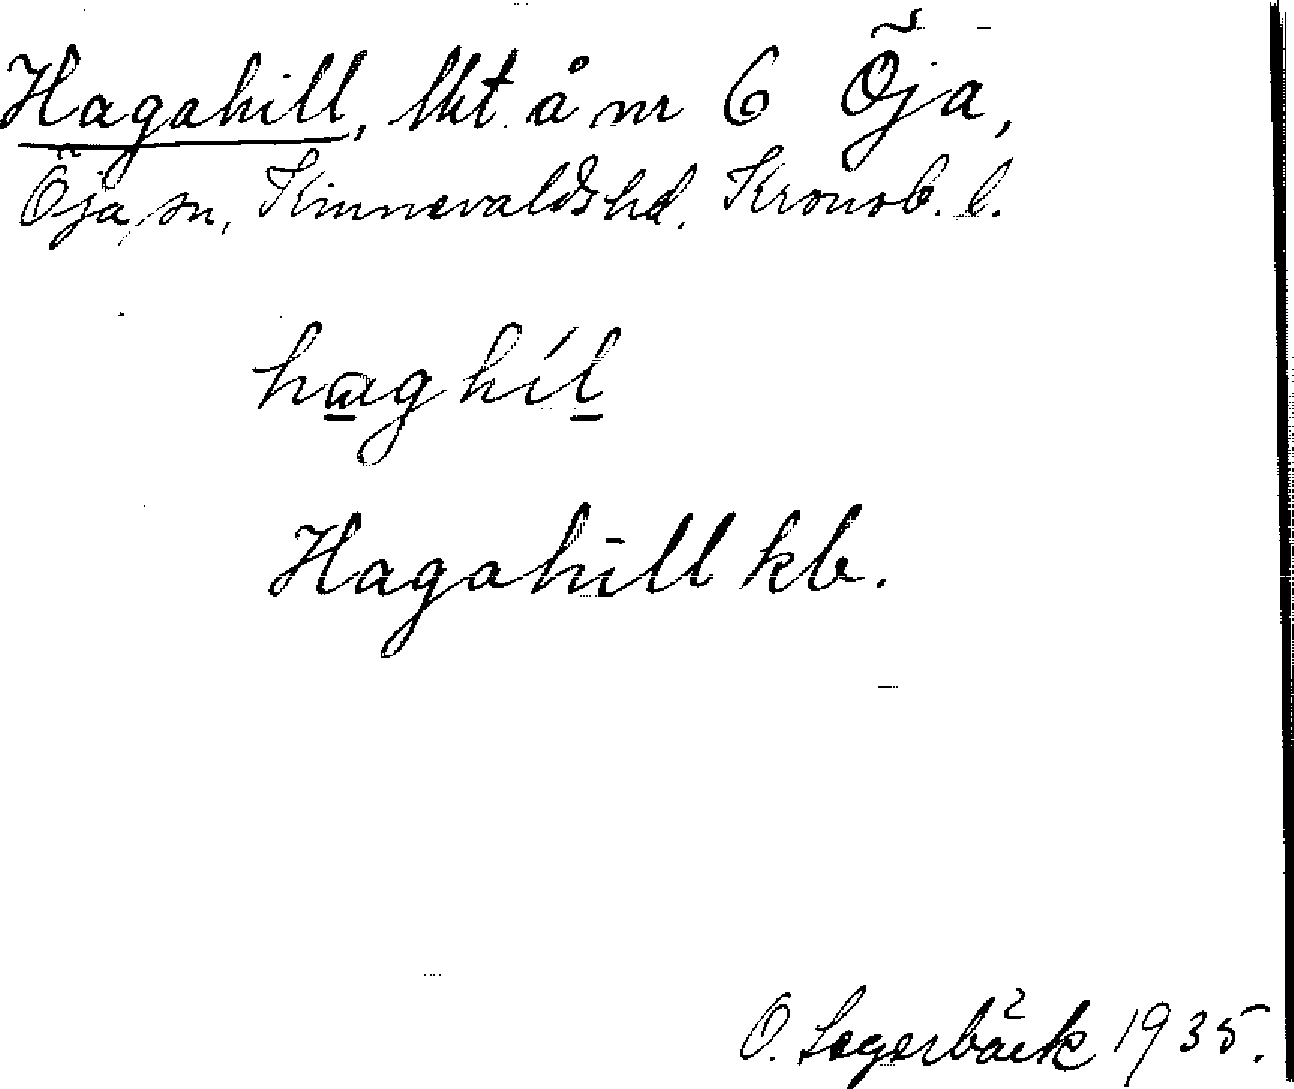 Hagahill, lkt å nr 6 Öja,
Öja sn, Kinnevalds hd. Kronob. l.
haghíl
Hagahill kb.
O. Lagerbäck 1935.